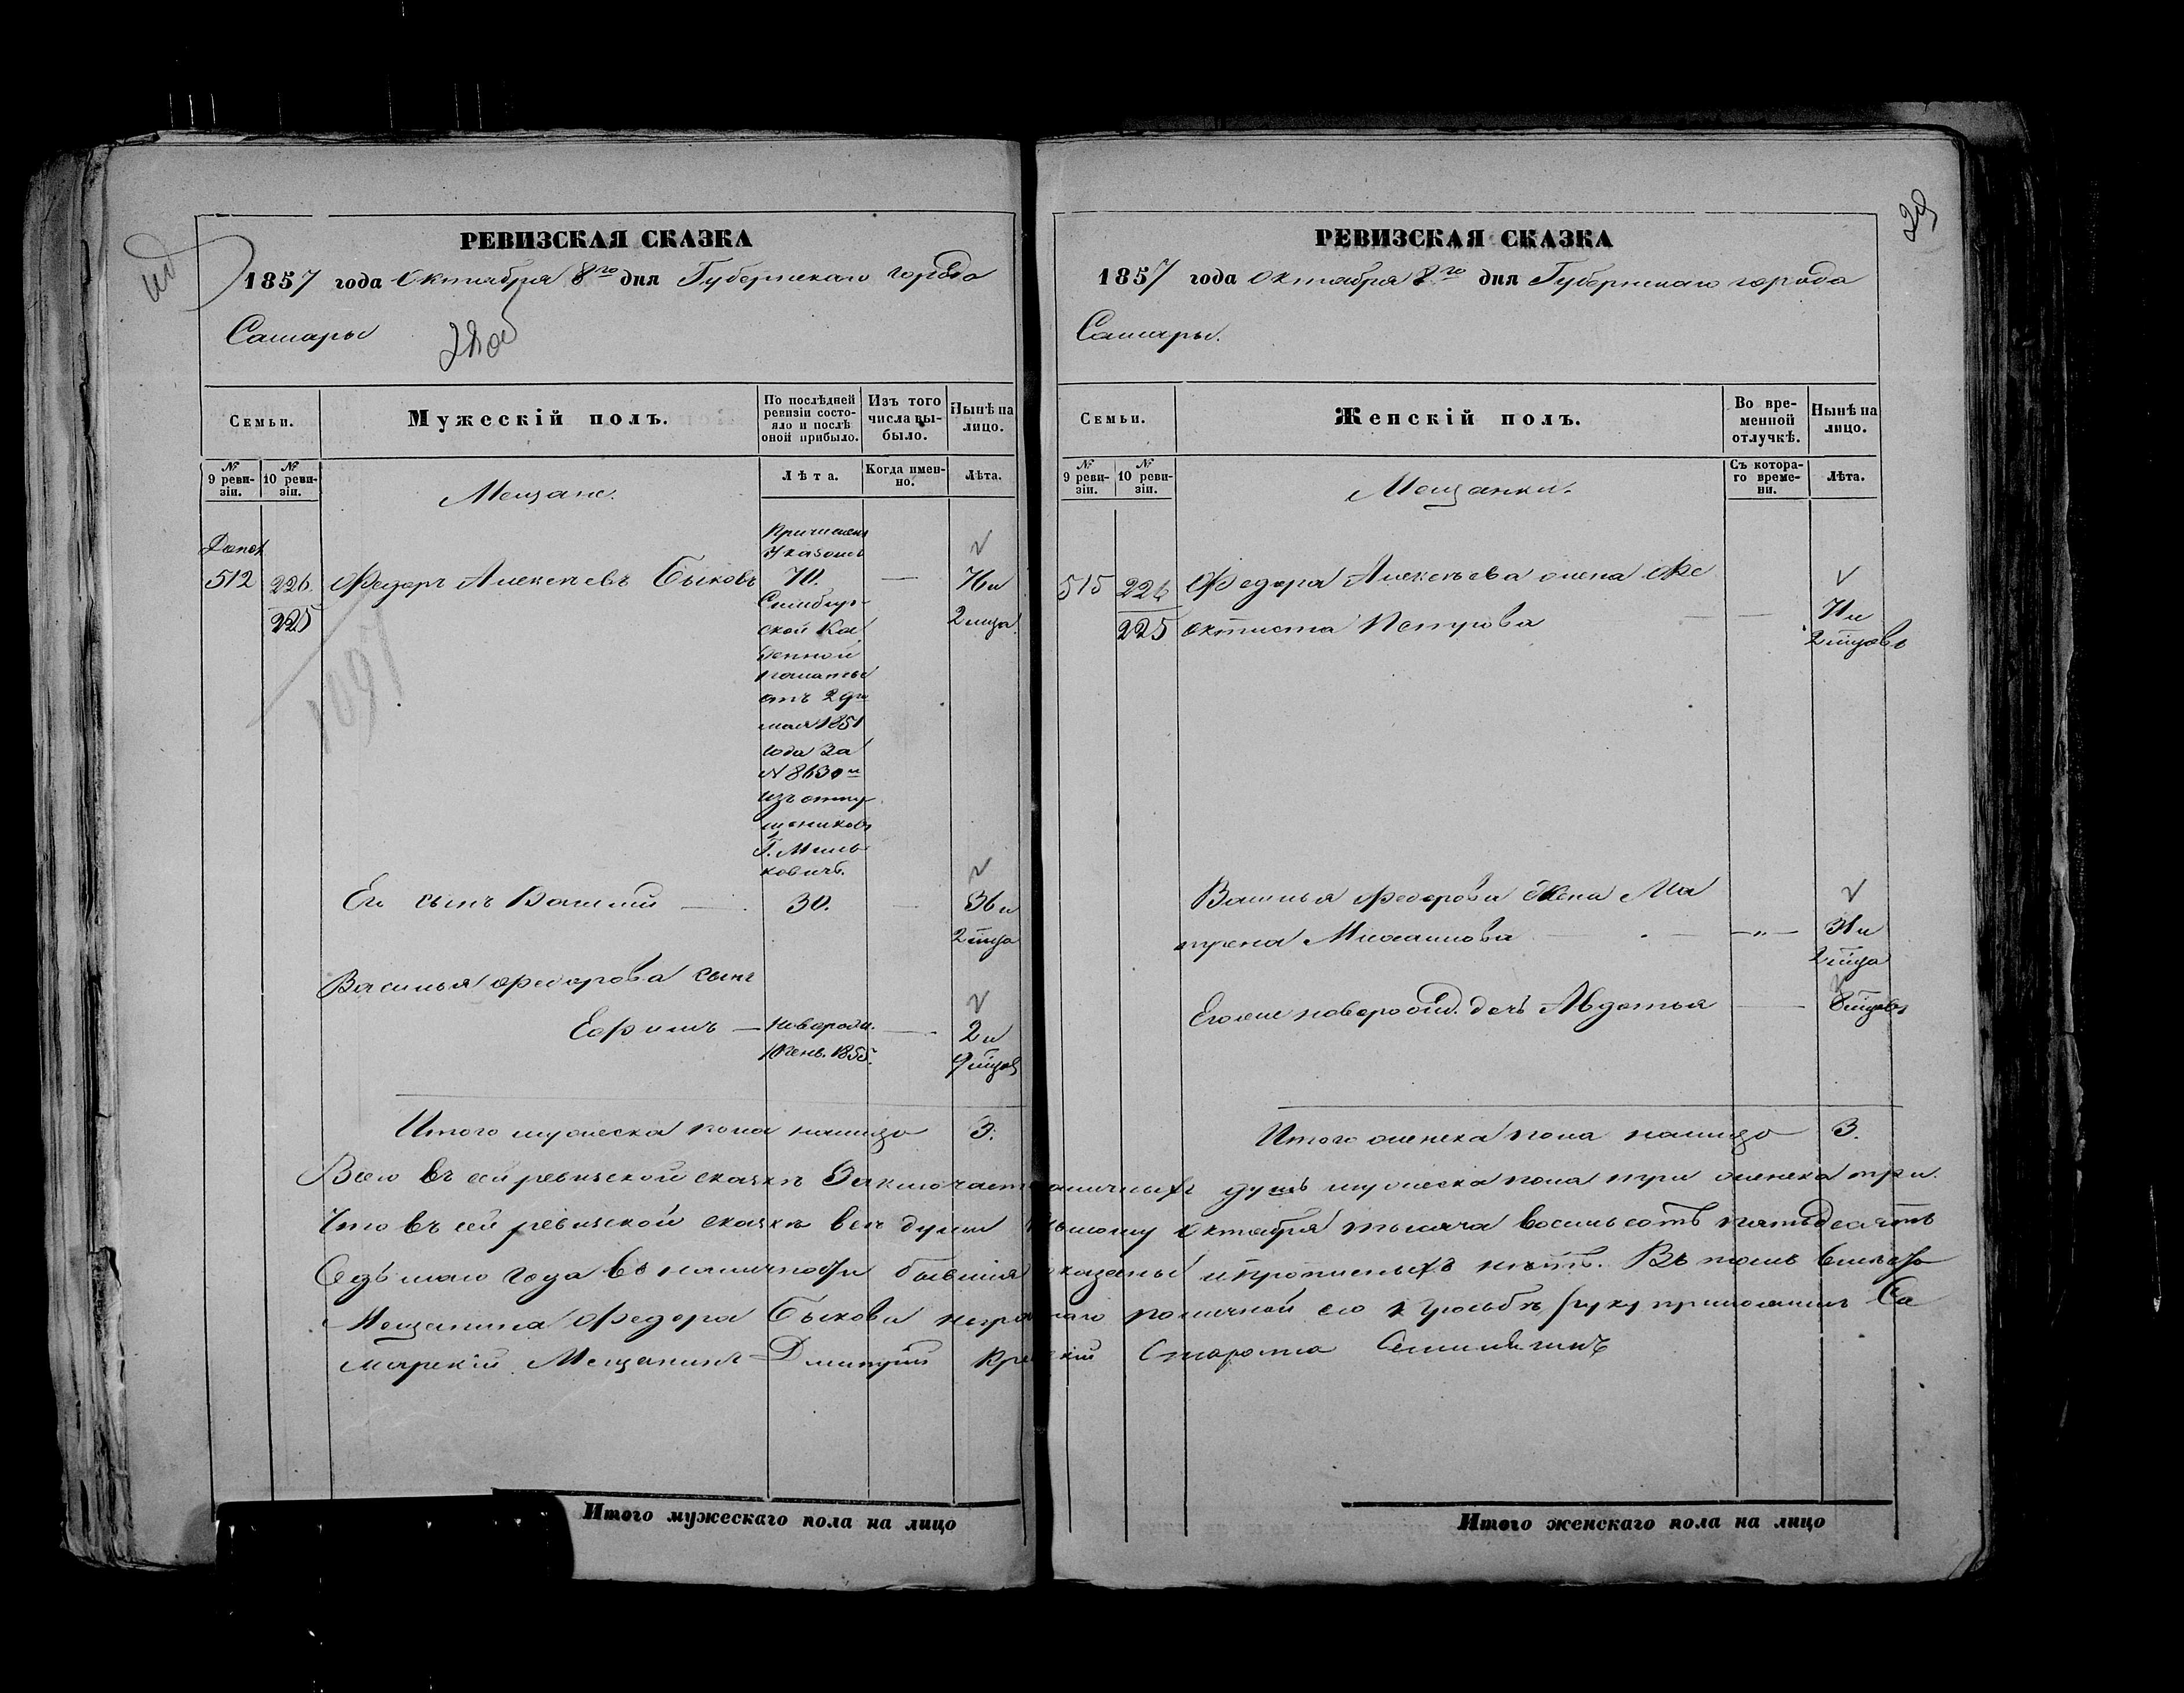 РЕВИЗСКАЯ СКАЗКА
1857 года Октября 8го дня Губернскаго города
Самары
28об
Семьи.
Мужескій полъ.
По послѣдней ревизіи состояло и послѣ оной прибыло.
Изъ того числа выбыло.
Нынѣ на лицо.
№ 9 ревизіи.
№ 10 ревизіи.
Лѣта.
Когда именно.
Лѣта.
Мещане.
Допол
512 226. Федоръ Алексѣевъ Быковъ 70. — 76 и
225 2 мца.
Причислен
Указомъ
Симбир-
ской Ка
зенной
палаты
отъ 29го
мая 1851
года за
№ 8630м
изъ отпу
щениковъ
Г. Миль
ковичъ.
Его сынъ Василій — 30. — 36 и
2 мца
Василья Федорова сынъ
Ефимъ — новорожд. — 2 и
1855. 9 мцов
Итого мужеска пола налицо 3.
РЕВИЗСКАЯ СКАЗКА
1857 года Октября 8го дня Губернскаго города
Самары.
29
Семьи.
Женскій полъ.
Во временной отлучкѣ.
Нынѣ на лицо.
№ 9 ревизіи.
№ 10 ревизіи.
Съ котораго времени.
Лѣта.
Мещанки.
515 226 Федора Алексѣева жена Фе
225 октиста Петрова — 71 и
2 мцовъ
Василья Федорова жена Ма
трена Михайлова — „ — 31 и
2 мца
Его же новорожд. дочь Авдотья — 8 мцовъ
Итого женска пола налицо 3.
Всего въ сей ревизской сказкѣ Заключает наличныхъ душъ мужеска пола три женска три.
Что въ сей ревизской сказкѣ всѣ души Октября тысяча восемьсотъ пятьдесятъ
Седьмаго года въ наличности бывшія показаны и прописныхъ нѣтъ. Въ томъ вмѣсто
Мещанина Федора Быкова неграмотнаго по личной его прозьбѣ руку приложилъ Са
марскій Мещанинъ Дмитрій Староста
Итого мужескаго пола на лицо
Итого женскаго пола на лицо